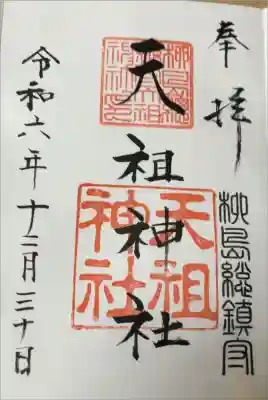 奉拝
柳島総鎮守
天祖神社
天祖
神社
令和六年十二月三十日